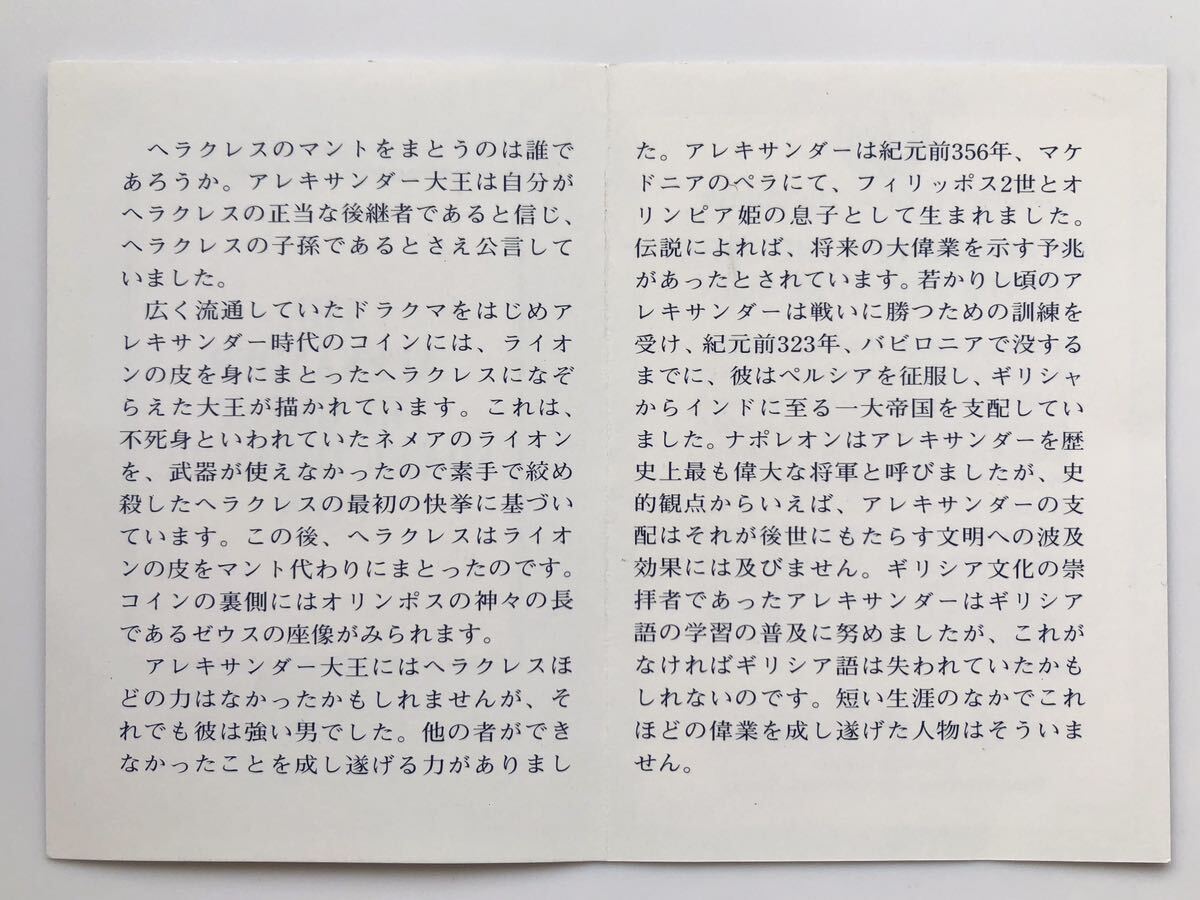 ヘラクレスのマントをまとうのは誰で
あろうか。アレキサンダー大王は自分が
ヘラクレスの正当な後継者であると信じ、
ヘラクレスの子孫であるとさえ公言して
いました。
広く流通していたドラクマをはじめア
レキサンダー時代のコインには、ライオ
ンの皮を身にまとったヘラクレスになぞ
らえた大王が描かれています。これは、
不死身といわれていたネメアのライオン
を、武器が使えなかったので素手で絞め
殺したヘラクレスの最初の快挙に基づい
ています。この後、ヘラクレスはライオ
ンの皮をマント代わりにまとったのです。
コインの裏側にはオリンポスの神々の長
であるゼウスの座像がみられます。
アレキサンダー大王にはヘラクレスほ
どの力はなかったかもしれませんが、そ
れでも彼は強い男でした。他の者ができ
なかったことを成し遂げる力がありまし
た。アレキサンダーは紀元前356年、マケ
ドニアのペラにて、フィリッポス2世とオ
リンピア姫の息子として生まれました。
伝説によれば、将来の大偉業を示す予兆
があったとされています。若かりし頃のア
レキサンダーは戦いに勝つための訓練を
受け、紀元前323年、バビロニアで没する
までに、彼はペルシアを征服し、ギリシャ
からインドに至る一大帝国を支配してい
ました。ナポレオンはアレキサンダーを歴
史上最も偉大な将軍と呼びましたが、史
的観点からいえば、アレキサンダーの支
配はそれが後世にもたらす文明への波及
効果には及びません。ギリシア文化の崇
拝者であったアレキサンダーはギリシア
語の学習の普及に努めましたが、これが
なければギリシア語は失われていたかも
しれないのです。短い生涯のなかでこれ
ほどの偉業を成し遂げた人物はそういま
せん。